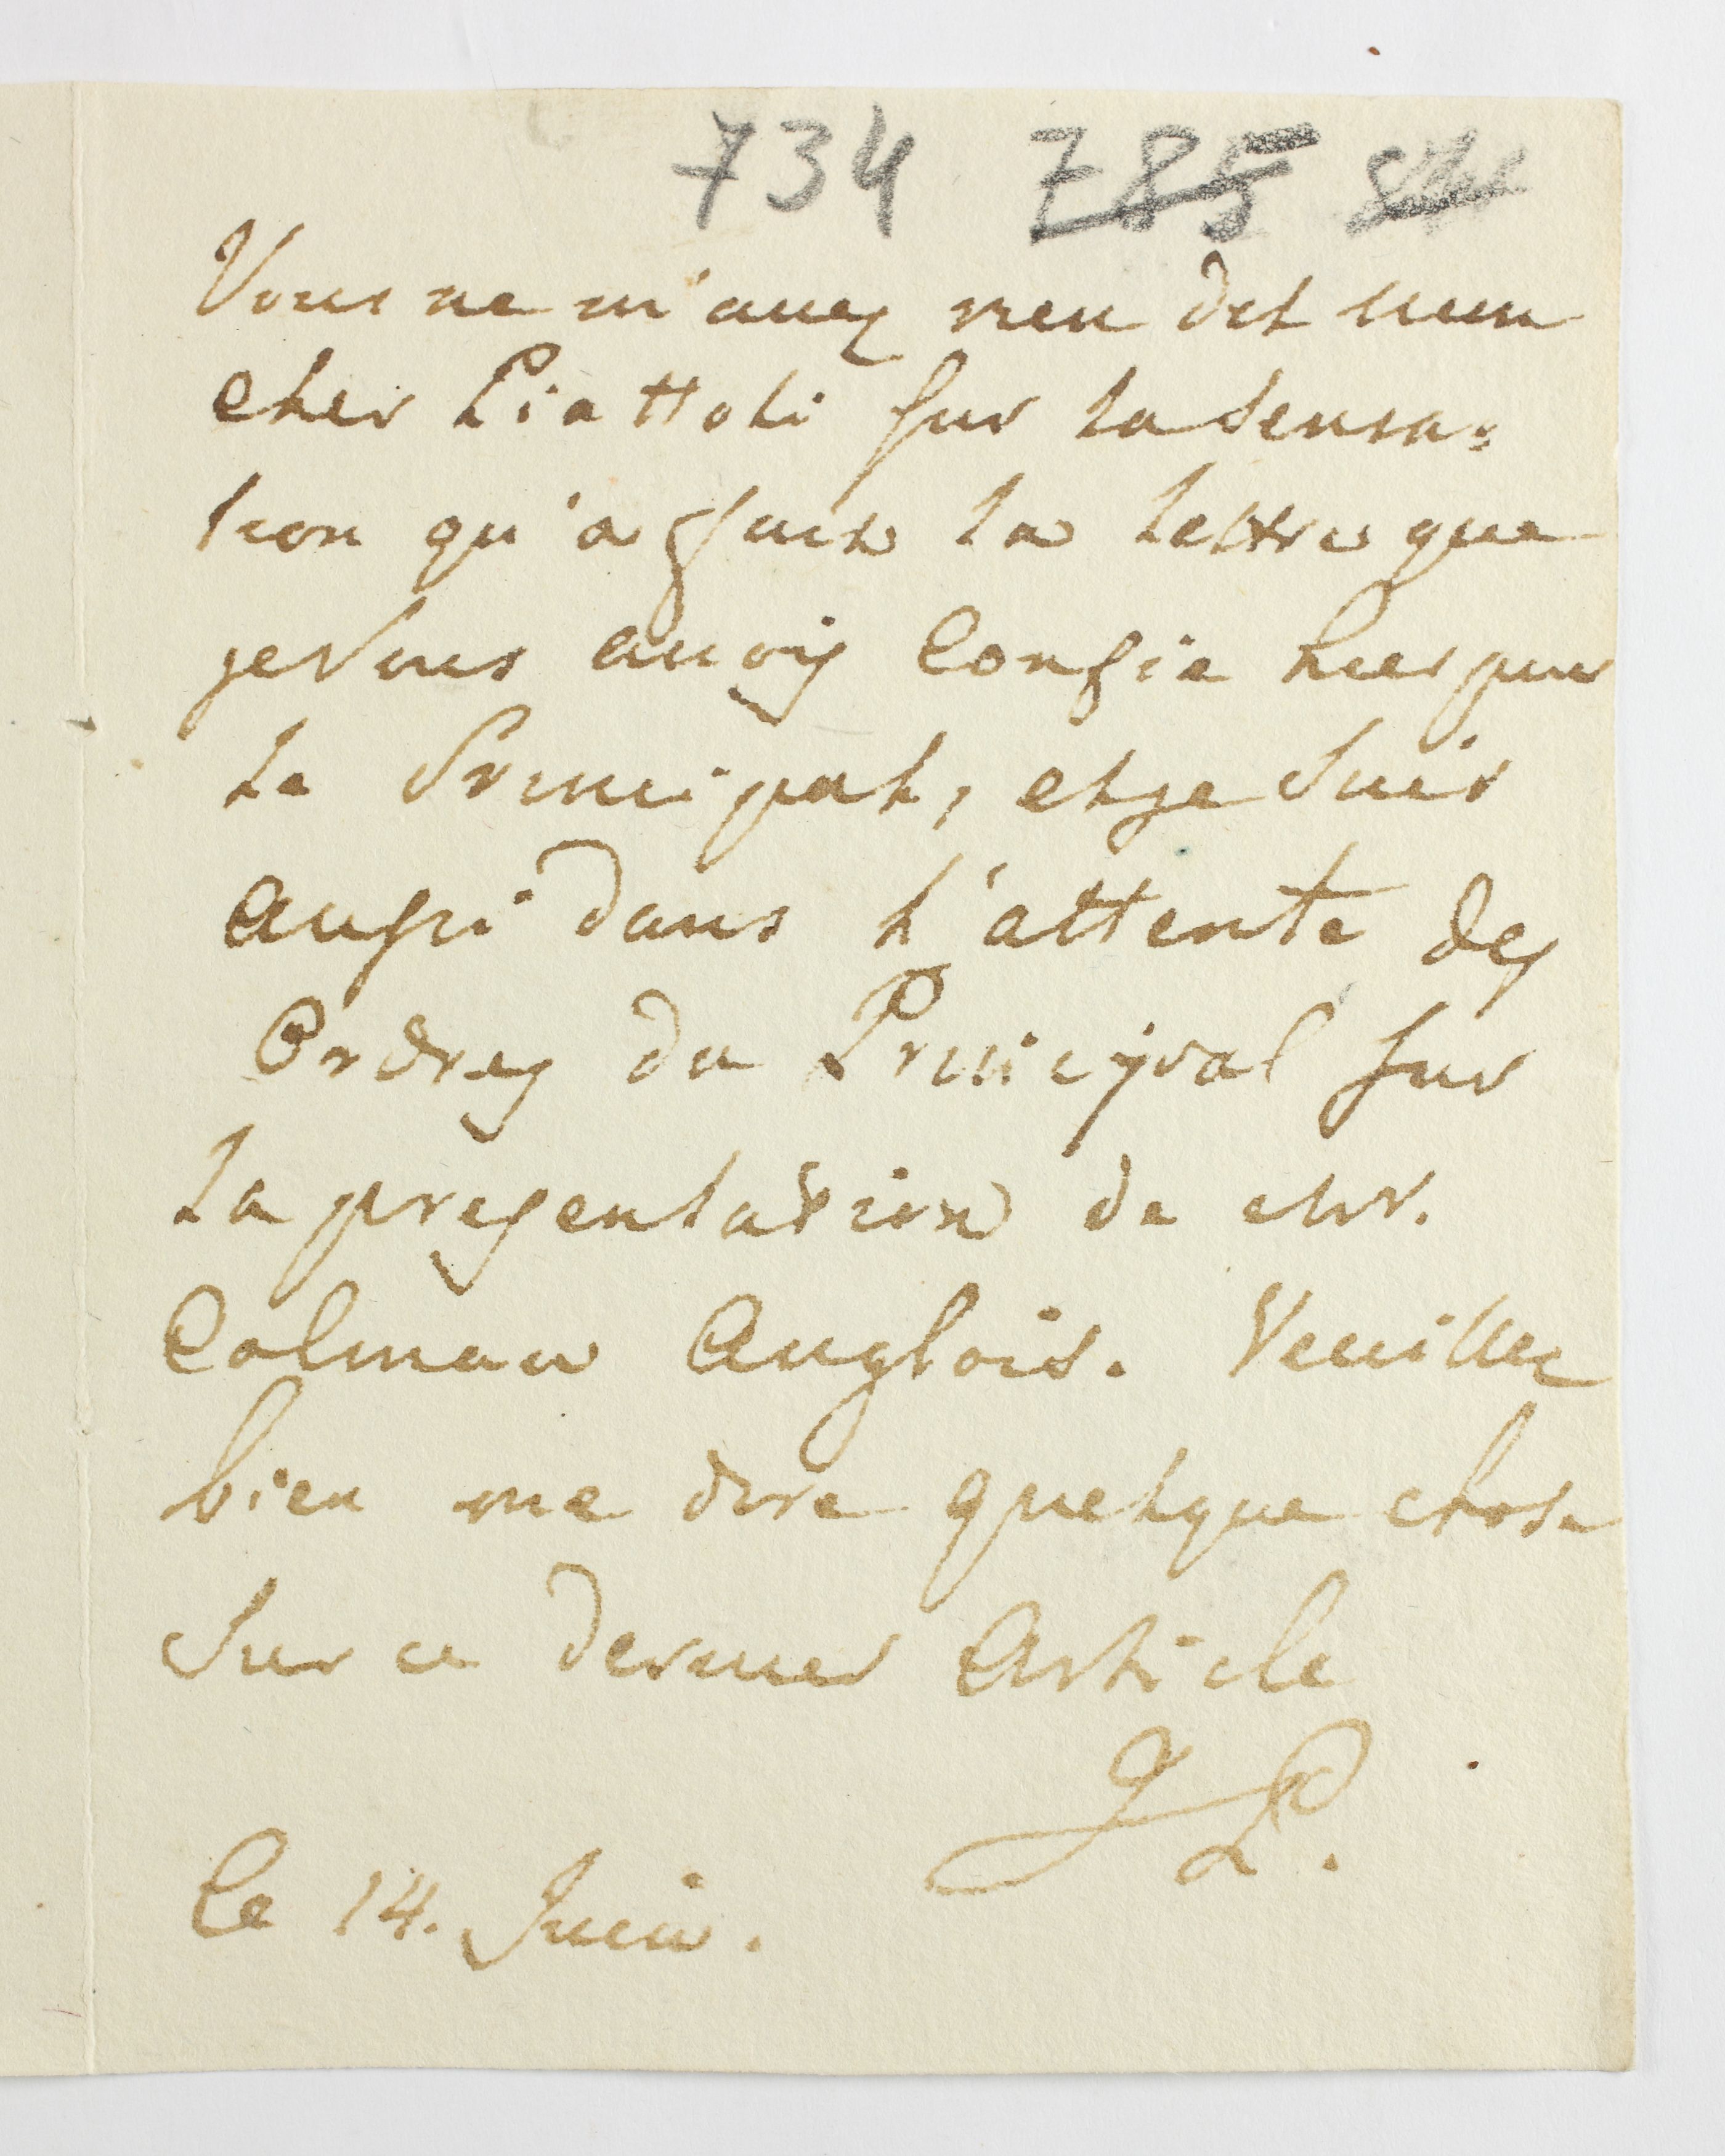 734 785
Vous ne m'avez rien dit mon
cher Piattoli sur la sensa=
tion qu'a fait la lettre que
je Vous avois Confié hier pour
le Principal, et je suis
aussi dans l'attente des
Ordres du Principal sur
la presentation de Mr.
Colman Anglois. Veuillez
bien me dire quelque chose
sur ce dernier Article
JP.
Le 14. Juin.